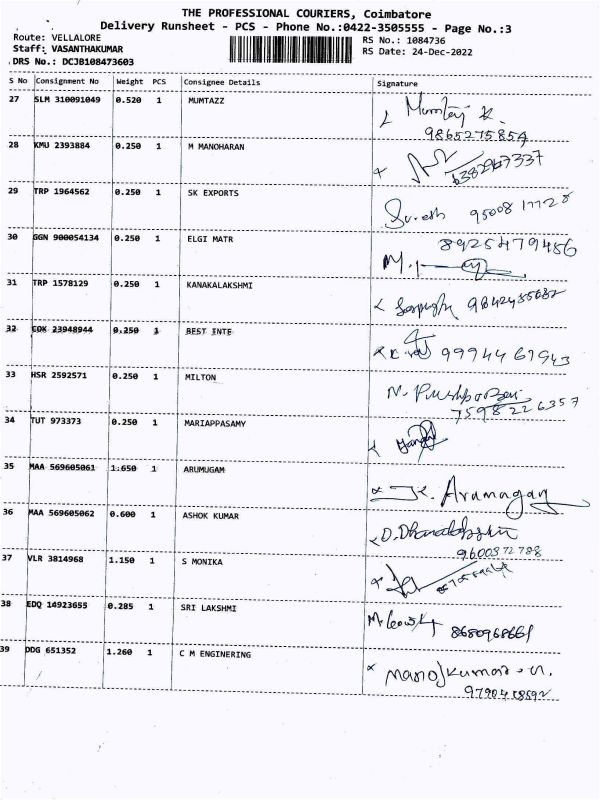 THE PROFESSIONAL COURIERS, Coimbatore
Delivery Runsheet - PCS - Phone No.:0422-3505555 - Page No.:3
Route: VELLALORE
RS No.: 1084736
Staff: VASANTHAKUMAR
RS Date: 24-Dec-2022
DRS No.: DCJB108473603
S No Consignment No Weight PCS Consignee Details Signature
27 SLM 310091049 0.520 1 MUMTAZZ
9865275854
28 KMU 2393884 0.250 1 M MANOHARAN
29 TRP 1964562 0.250 1 SK EXPORTS
30 GGN 900054134 0.250 1 ELGI MATR 8925479486
31 TRP 1578129 0.250 1 KANAKALAKSHMI
32 COK 23948944 0.250 1 BEST INTE
9994467943
33 HSR 2592571 0.250 1 MILTON
7598226357
34 TUT 973373 0.250 1 MARIAPPASAMY
35 MAA 569605061 1.650 1 ARUMUGAM
36 MAA 569605062 0.600 1 ASHOK KUMAR
37 VLR 3814968 1.150 1 S MONIKA
38 EDQ 14923655 0.285 1 SRI LAKSHMI
8680968661
39 DDG 651352 1.260 1 C M ENGINERING
Manojkumar